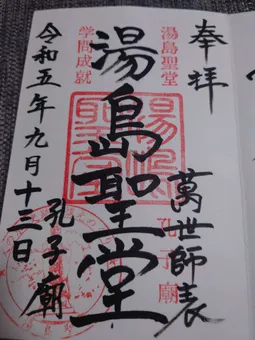 奉拝
萬世師表
湯島聖堂
孔子廟
湯島聖堂
学問成就
令和五年九月十三日
孔子廟